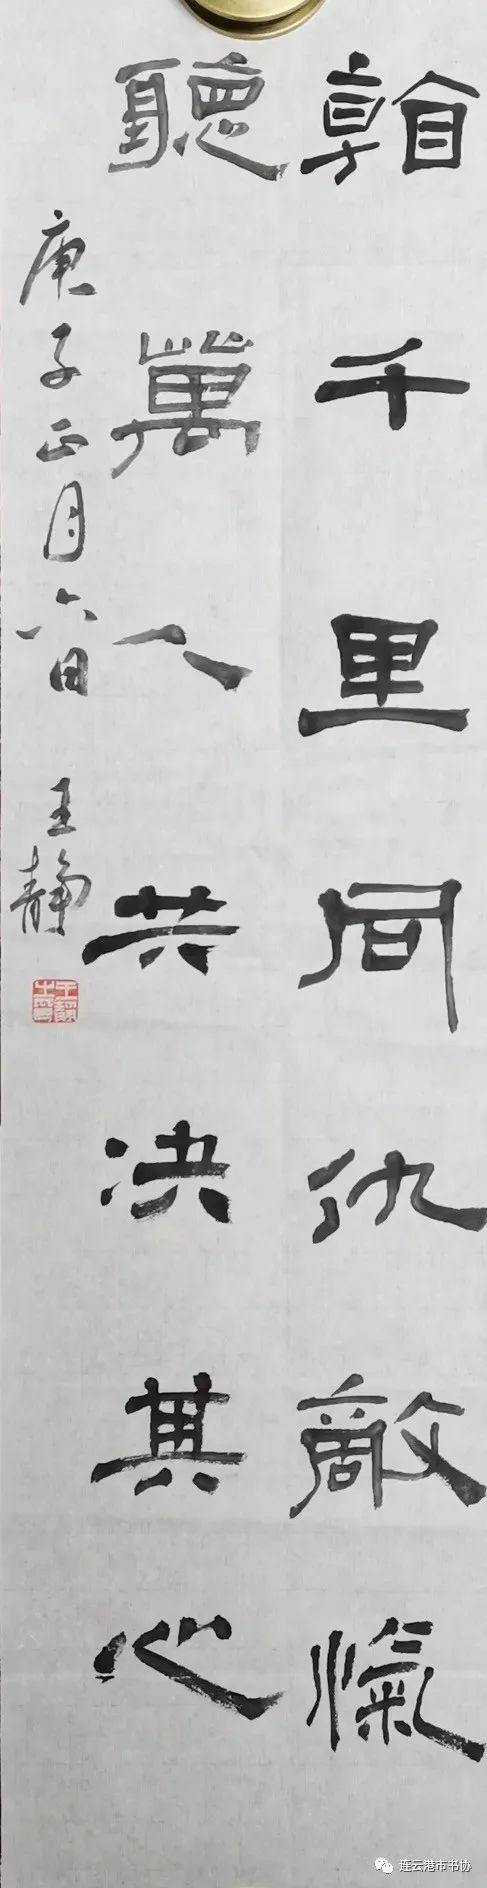 千里同仇敵愾
聽萬人共决其心
庚子正月六日 王静
连云港市书协